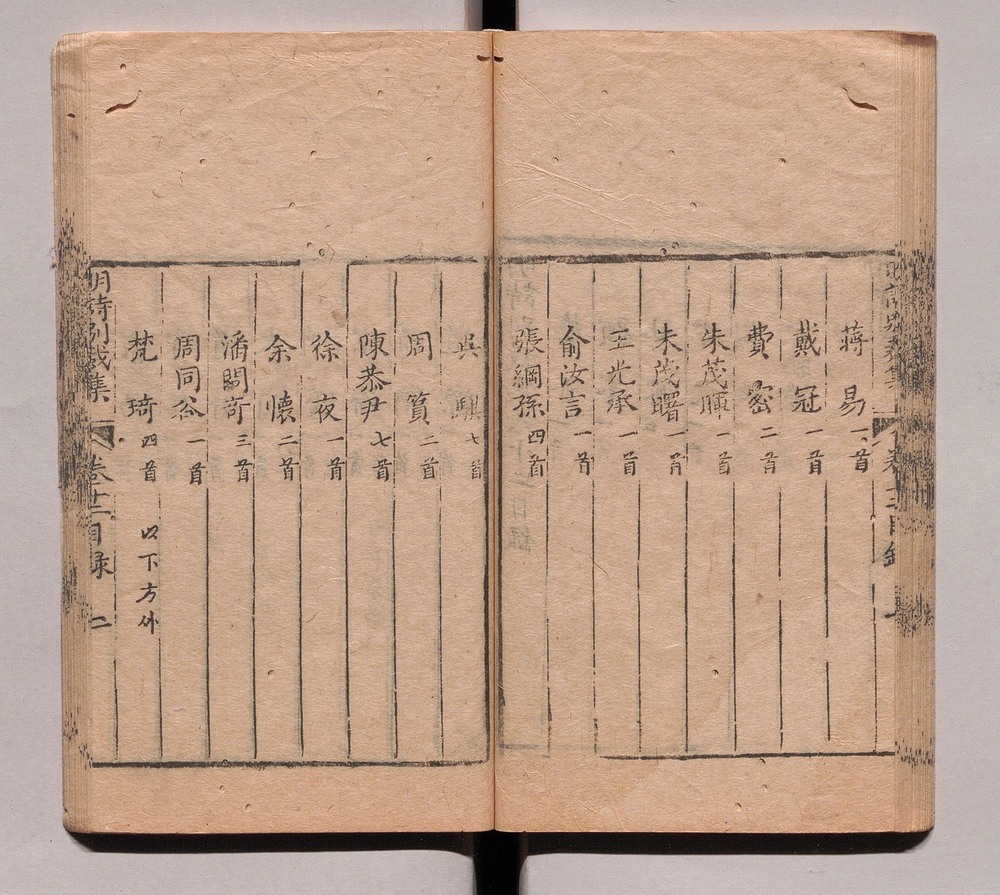 蔣 易 一首
戴 冠 一首
費 密 二首
朱茂暉 一首
朱茂曙 一首
王光承 一首
俞汝言 一首
張綱孫 四首
吳 騏 七首
周 篔 二首
陳恭尹 七首
徐 夜 一首
余 懷 二首
潘問奇 三首
周同谷 一首
梵 琦 四首 以下方外
明詩別裁集 卷十二目録 二